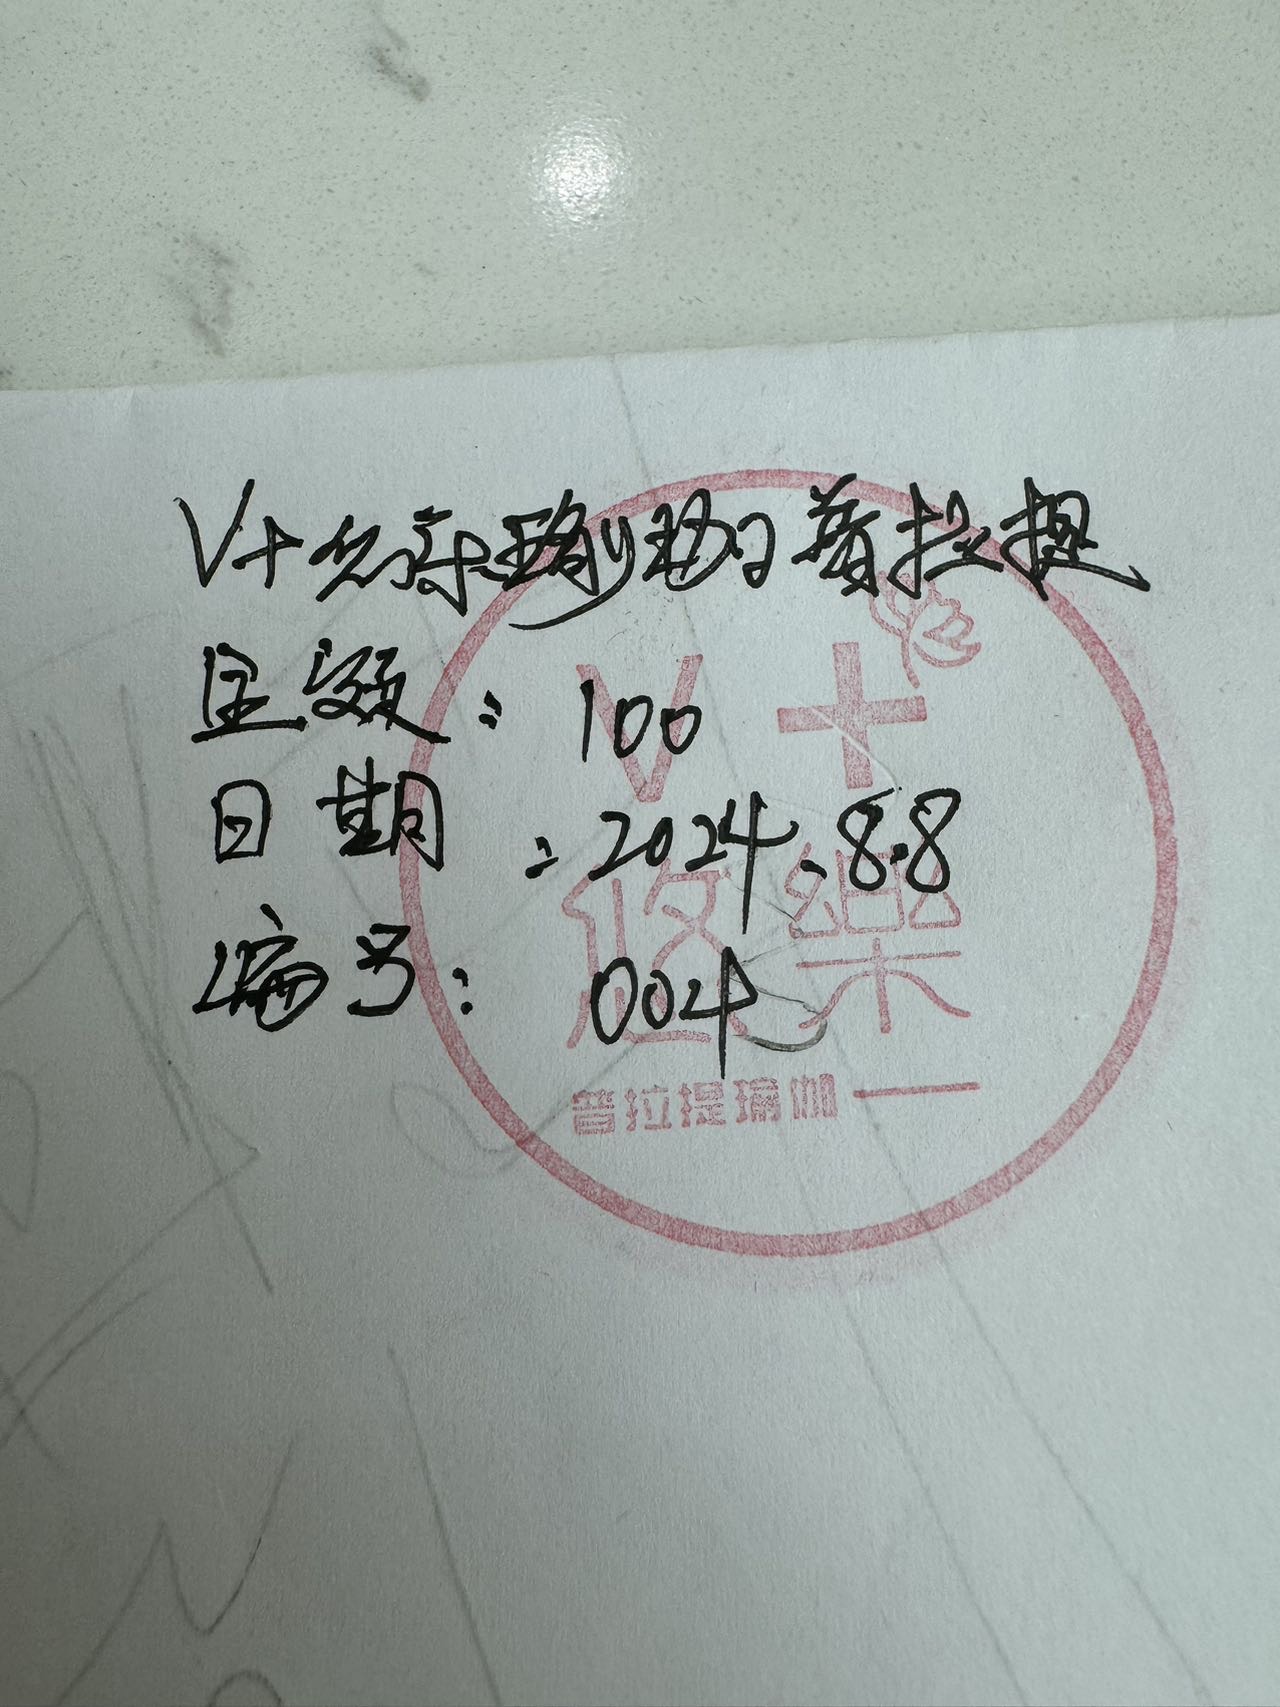 V+悠乐瑜珈普拉提
呈效：100
日期：2024.8.8
编号：004
V+
悠樂
普拉提瑜伽